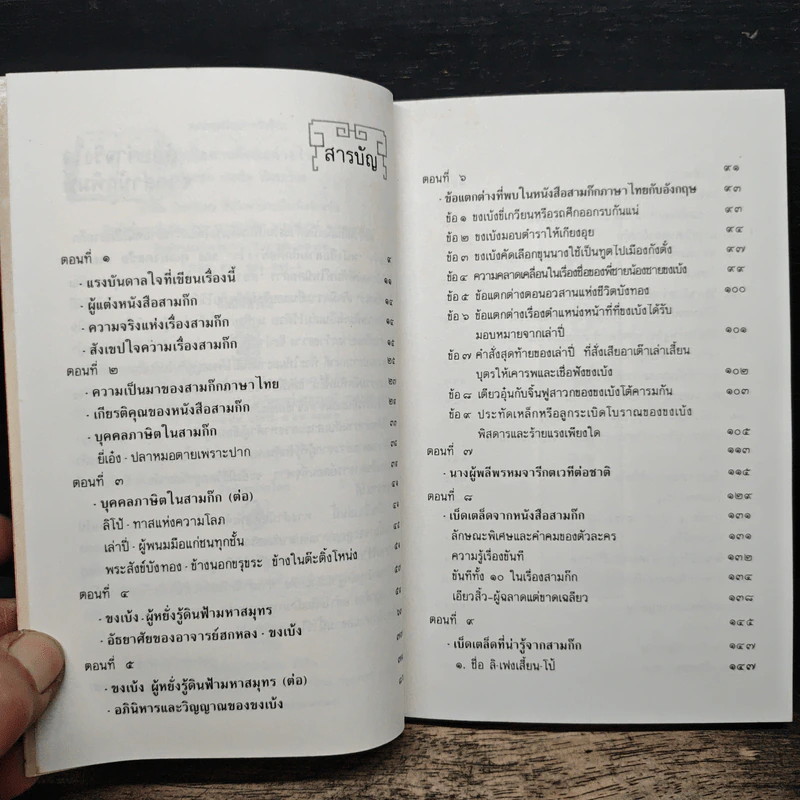 สารบัญ
ตอนที่ ๑ ๙
· แรงบันดาลใจที่เขียนเรื่องนี้ ๑๑
· ผู้แต่งหนังสือสามก๊ก ๑๔
· ความจริงแห่งเรื่องสามก๊ก
· สังเขปใจความเรื่องสามก๊ก
ตอนที่ ๒
· ความเป็นมาของสามก๊กภาษาไทย
· เกียรติคุณของหนังสือสามก๊ก
· บุคคลภาษิตในสามก๊ก
ยี่เอ๋ง - ปลาหมอตายเพราะปาก
ตอนที่ ๓
· บุคคลภาษิตในสามก๊ก (ต่อ)
ลิโป้ - ทาสแห่งความโลภ
เล่าปี่ - ผู้พนมมือแก่ชนทุกชั้น
พระสังข์บังทอง - ช้างนอกขรุขระ ข้างในต๊ะติ้งโหน่ง
ตอนที่ ๔
· ขงเบ้ง - ผู้หยั่งรู้ดินฟ้ามหาสมุทร
· อัธยาศัยของอาจารย์ฮกหลง - ขงเบ้ง
ตอนที่ ๕
· ขงเบ้ง ผู้หยั่งรู้ดินฟ้ามหาสมุทร (ต่อ)
· อภินิหารและวิญญาณของขงเบ้ง
ตอนที่ ๖ ๙๑
· ข้อแตกต่างที่พบในหนังสือสามก๊กภาษาไทยกับอังกฤษ ๙๓
ข้อ ๑ ขงเบ้งขี่เกวียนหรือรถศึกออกรบกันแน่ ๙๓
ข้อ ๒ ขงเบ้งมอบตำราให้เกียงอุย ๙๔
ข้อ ๓ ขงเบ้งคัดเลือกขุนนางใช้เป็นทูตไปเมืองกังตั๋ง ๙๗
ข้อ ๔ ความคลาดเคลื่อนในเรื่องชื่อของพี่ชายน้องชายขงเบ้ง ๙๙
ข้อ ๕ ข้อแตกต่างตอนอวสานแห่งชีวิตบังทอง ๑๐๐
ข้อ ๖ ข้อแตกต่างเรื่องตำแหน่งหน้าที่ที่ขงเบ้งได้รับ
มอบหมายจากเล่าปี่ ๑๐๑
ข้อ ๗ คำสั่งสุดท้ายของเล่าปี่ ที่สั่งเสียอาเต๊าเล่าเสี้ยน
บุตรให้เคารพและเชื่อฟังขงเบ้ง ๑๐๒
ข้อ ๘ เตียวอุ๋นกับจิ้นฟูสาวกของขงเบ้งโต้คารมกัน ๑๐๓
ข้อ ๙ ประทัดเหล็กหรือลูกระเบิดโบราณของขงเบ้ง
พิสดารและร้ายแรงเพียงใด ๑๐๕
ตอนที่ ๗ ๑๑๓
· นางผู้พลีพรหมจารีกตเวทีต่อชาติ ๑๑๕
ตอนที่ ๘ ๑๒๙
· เบ็ดเตล็ดจากหนังสือสามก๊ก ๑๓๑
ลักษณะพิเศษและคำคมของตัวละคร ๑๓๑
ความรู้เรื่องขันที ๑๓๒
ขันทีทั้ง ๑๐ ในเรื่องสามก๊ก ๑๓๔
เอียวสิ้ว-ผู้ฉลาดแต่ขาดเฉลียว ๑๓๘
ตอนที่ ๙ ๑๔๕
· เบ็ดเตล็ดที่น่ารู้จากสามก๊ก ๑๔๗
๑. ชื่อ ลิ-เฟงเสี้ยน-โป้ ๑๔๗